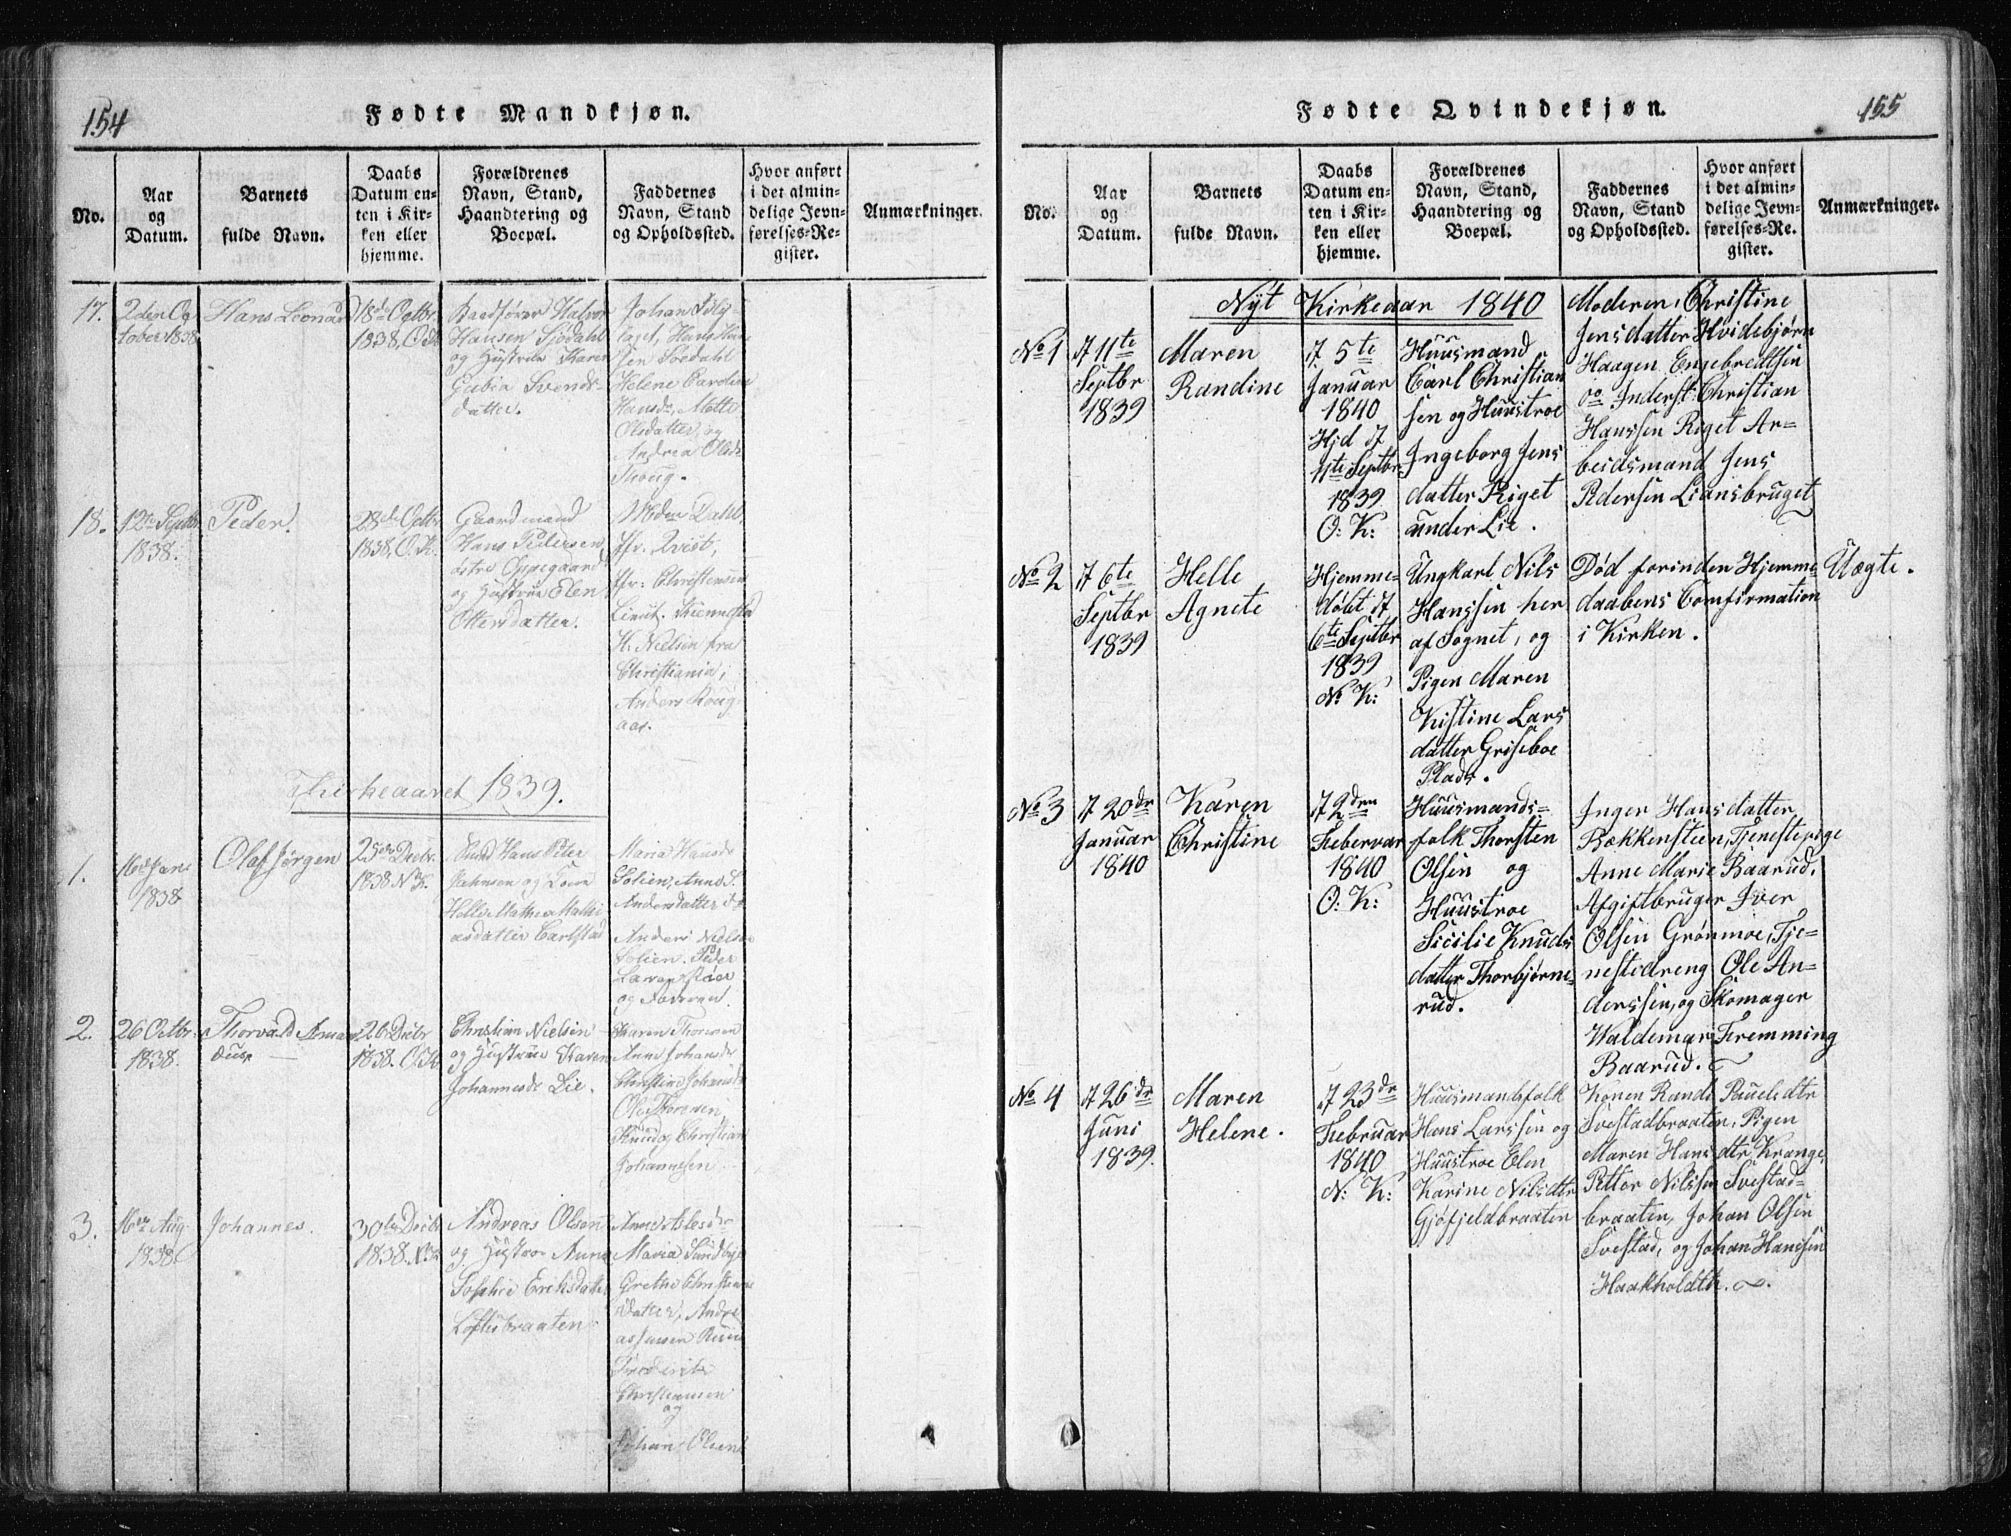 154
Fødte Mandkjøn.
No.
Aar
og
Datum.
Barnets
fulde Navn.
Daabs
Datum en-
ten i Kir-
ken eller
hjemme.
Forældrenes
Navn, Stand,
Haandtering og
Boepæl.
Faddernes
Navn, Stand
og Opholdssted.
Hvor anført
i det almin-
delige Jevn-
førelses-Re-
gister.
Anmærkninger.
17.
2den Oc
tober 1838
Hans Leonard
18d Octbr
1838, O.K.
Halvor
Hansen Sjødahl
og Hustrue Karen
Gubia Svends-
datter.
Johan
Helene Caroline
Hansdr, Mette
Olsdatter, og
Andrea Olsdr
18.
12te Septbr
1838.
Peder.
28de Octbr
1838, O.K.
Gaardmand
Hans Pedersen,
østre Oppegaard
og Hustrue Elen
Ottersdatter.
Dahl,
fr. Qvist,
fr. Christensen
Lieut.
H. Nielsen fra
Christiania,
Anders
aas.
Kirkeaaret 1839.
1.
16de
1838
Olaf Jørgen
25de Decbr.
1838. N.K.
Hans Peter
Jahnsen og
Helle
asdatter Carlstad
Maria Hansdr
Solien, Anne S.
Andersdatter
Anders Nielsen
Solien. Peder
og Faderen.
2.
26 Octbr.
1838.
Thorvald
26 Decbr
1838. O.K.
Christian Nielsen
og Hustrue Karen
Johannesdr Lie.
Karen Thoresen
Anne Johansdr
Christine Johansdr
Ole Thoresen,
Knud og Christian
Johannesen
3.
16de Aug
1838.
Johannes.
30te Decbr
1838. N.K.
Andreas Olsen
og Hustroe Anne
Sophie Eriksdatter
Løftesbraaten.
Anne Aslesdr
Maria Sundbye
Grethe Christians
datter, Andre
as Jensen
Frederik
Christiansen
og
Johan Olsen
Fødte Qvindekjøn.
155
No.
Aar
og
Datum.
Barnets
fulde Navn.
Daabs
Datum en-
ten i Kir-
ken eller
hjemme.
Forældrenes
Navn, Stand,
Haandtering og
Boepæl.
Faddernes
Navn, Stand
og Opholdssted.
Hvor anført
i det almin-
delige Jevn-
førelses-Re-
gister.
Anmærkninger.
Nyt Kirkeaar 1840
No 1
d 11te
Septbr
1839
Maren
Randine
d. 5te
Januar
1840
Hjd d
11te Septbr
1839
O: K:
Huusmand
Carl Christian
sen og Huustroe
Ingeborg Jens
datter Riget
under Lie.
Moderen, Christine
Jensdatter Hvidebjørn
Haagen Engebredtsen
og Inderst: Christian
Hanssen Riget Ar-
beidsmand Jens
Pedersen Liansbruget
No 2
d 6te
Septbr
1839
Helle
Agnete
Hjemme-
døbt d
6te Septbr
1839
N. K:
Ungkarl Nils
Hanssen her
af Sognet, og
Pigen Maren
Kistine Lars
datter Griseboe
Plads.
Død forinden Hjemme-
daabens Comfirmation
i Kirken.
Uægte.
No 3
d 20de
Januar
1840
Karen
Christine
d 2den
Febervar
1840
O. K:
Huusmands-
folk Thorsten
Olsen og
Huustroe
Sicilie Knuds
datter Thorbjørne-
rud.
Inger Hansdatter,
Bækkensteen, Tjenestepige
Anne Marie Baarud,
Afgiftbruger Iver
Olsen Grønmoe, Tje-
nestedreng Ole An-
derssen, og Skomager
Waldemar Fremming
Baarud.
No 4
d 26de
Juni
1839.
Maren
Helene.
d 23de
Februar
1840
N: K:
Huusmandsfolk
Hans Larssen og
Huustroe Elen
Karine Nilsdtr
Gjøfjeldbraaten
Konen Randi Pauelsdtr
Svestadbraaten, Pigen
Maren Hansdtr Krange,
Petter Nilssen Svestad-
braaten, Johan Olsen
Svestad, og Johan Hanssen
Haakholdth.